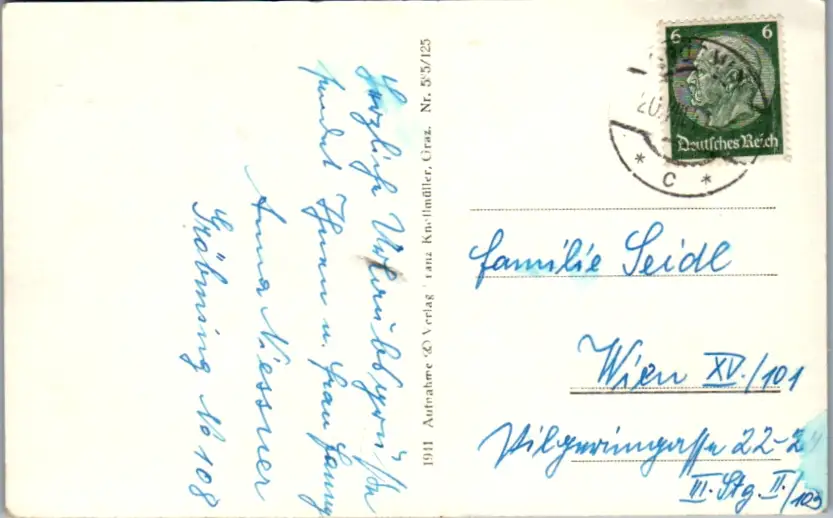 Herzliche Urlaubsgrüße
sendet Ihnen u. Frau Fanny
Anna Niessner
Gröbming No 108
1941 Aufnahme u. Verlag Franz Knollmüller, Graz. Nr. 585/125
6 6
Deutsches Reich
* C *
Familie Seidl
Wien XV./101
Pilgerimgasse 22-24
III. Stg. II./103